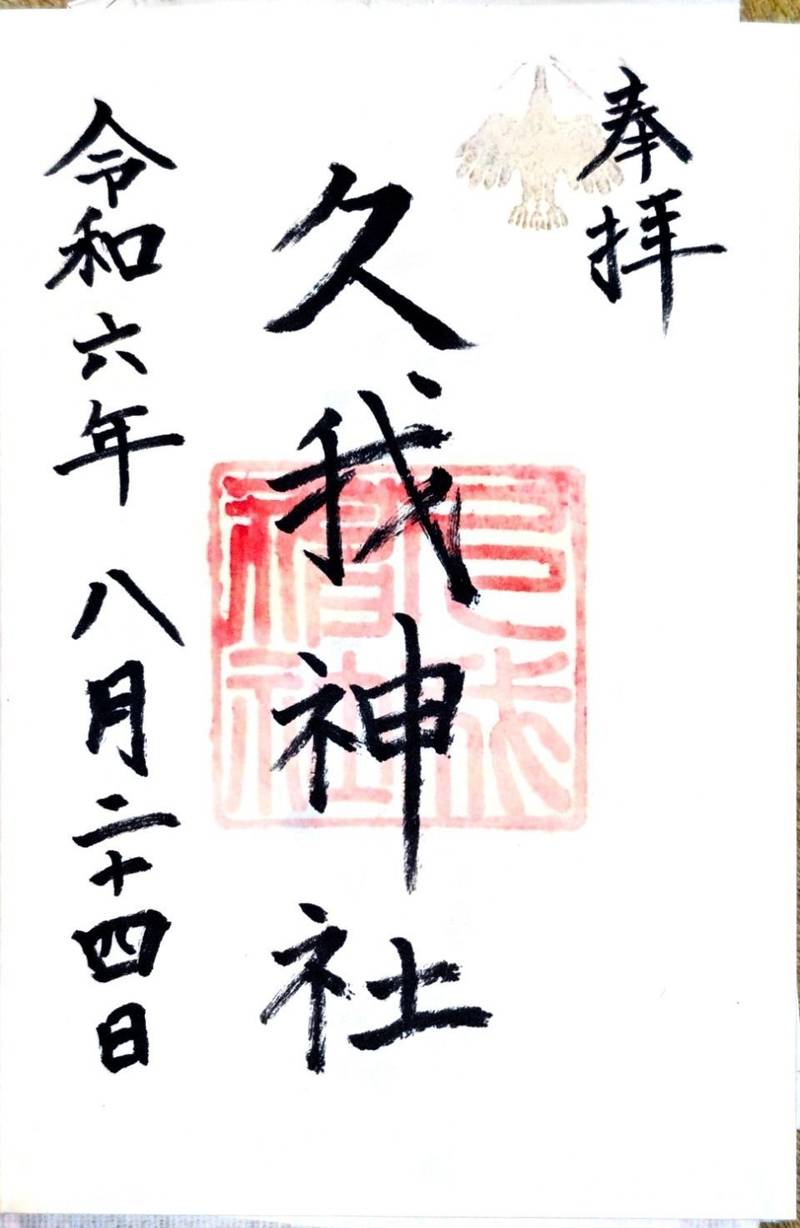 奉拝
久我神社
令和六年 八月二十四日